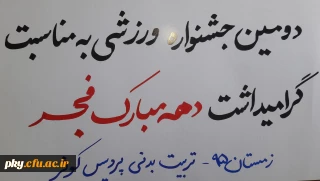 دومین جشنواره ورزشی به مناسبت
گرامیداشت دهه مبارک فجر
زمستان ۹۵- تربیت بدنی پردیس کوثر
pky.cfu.ac.ir